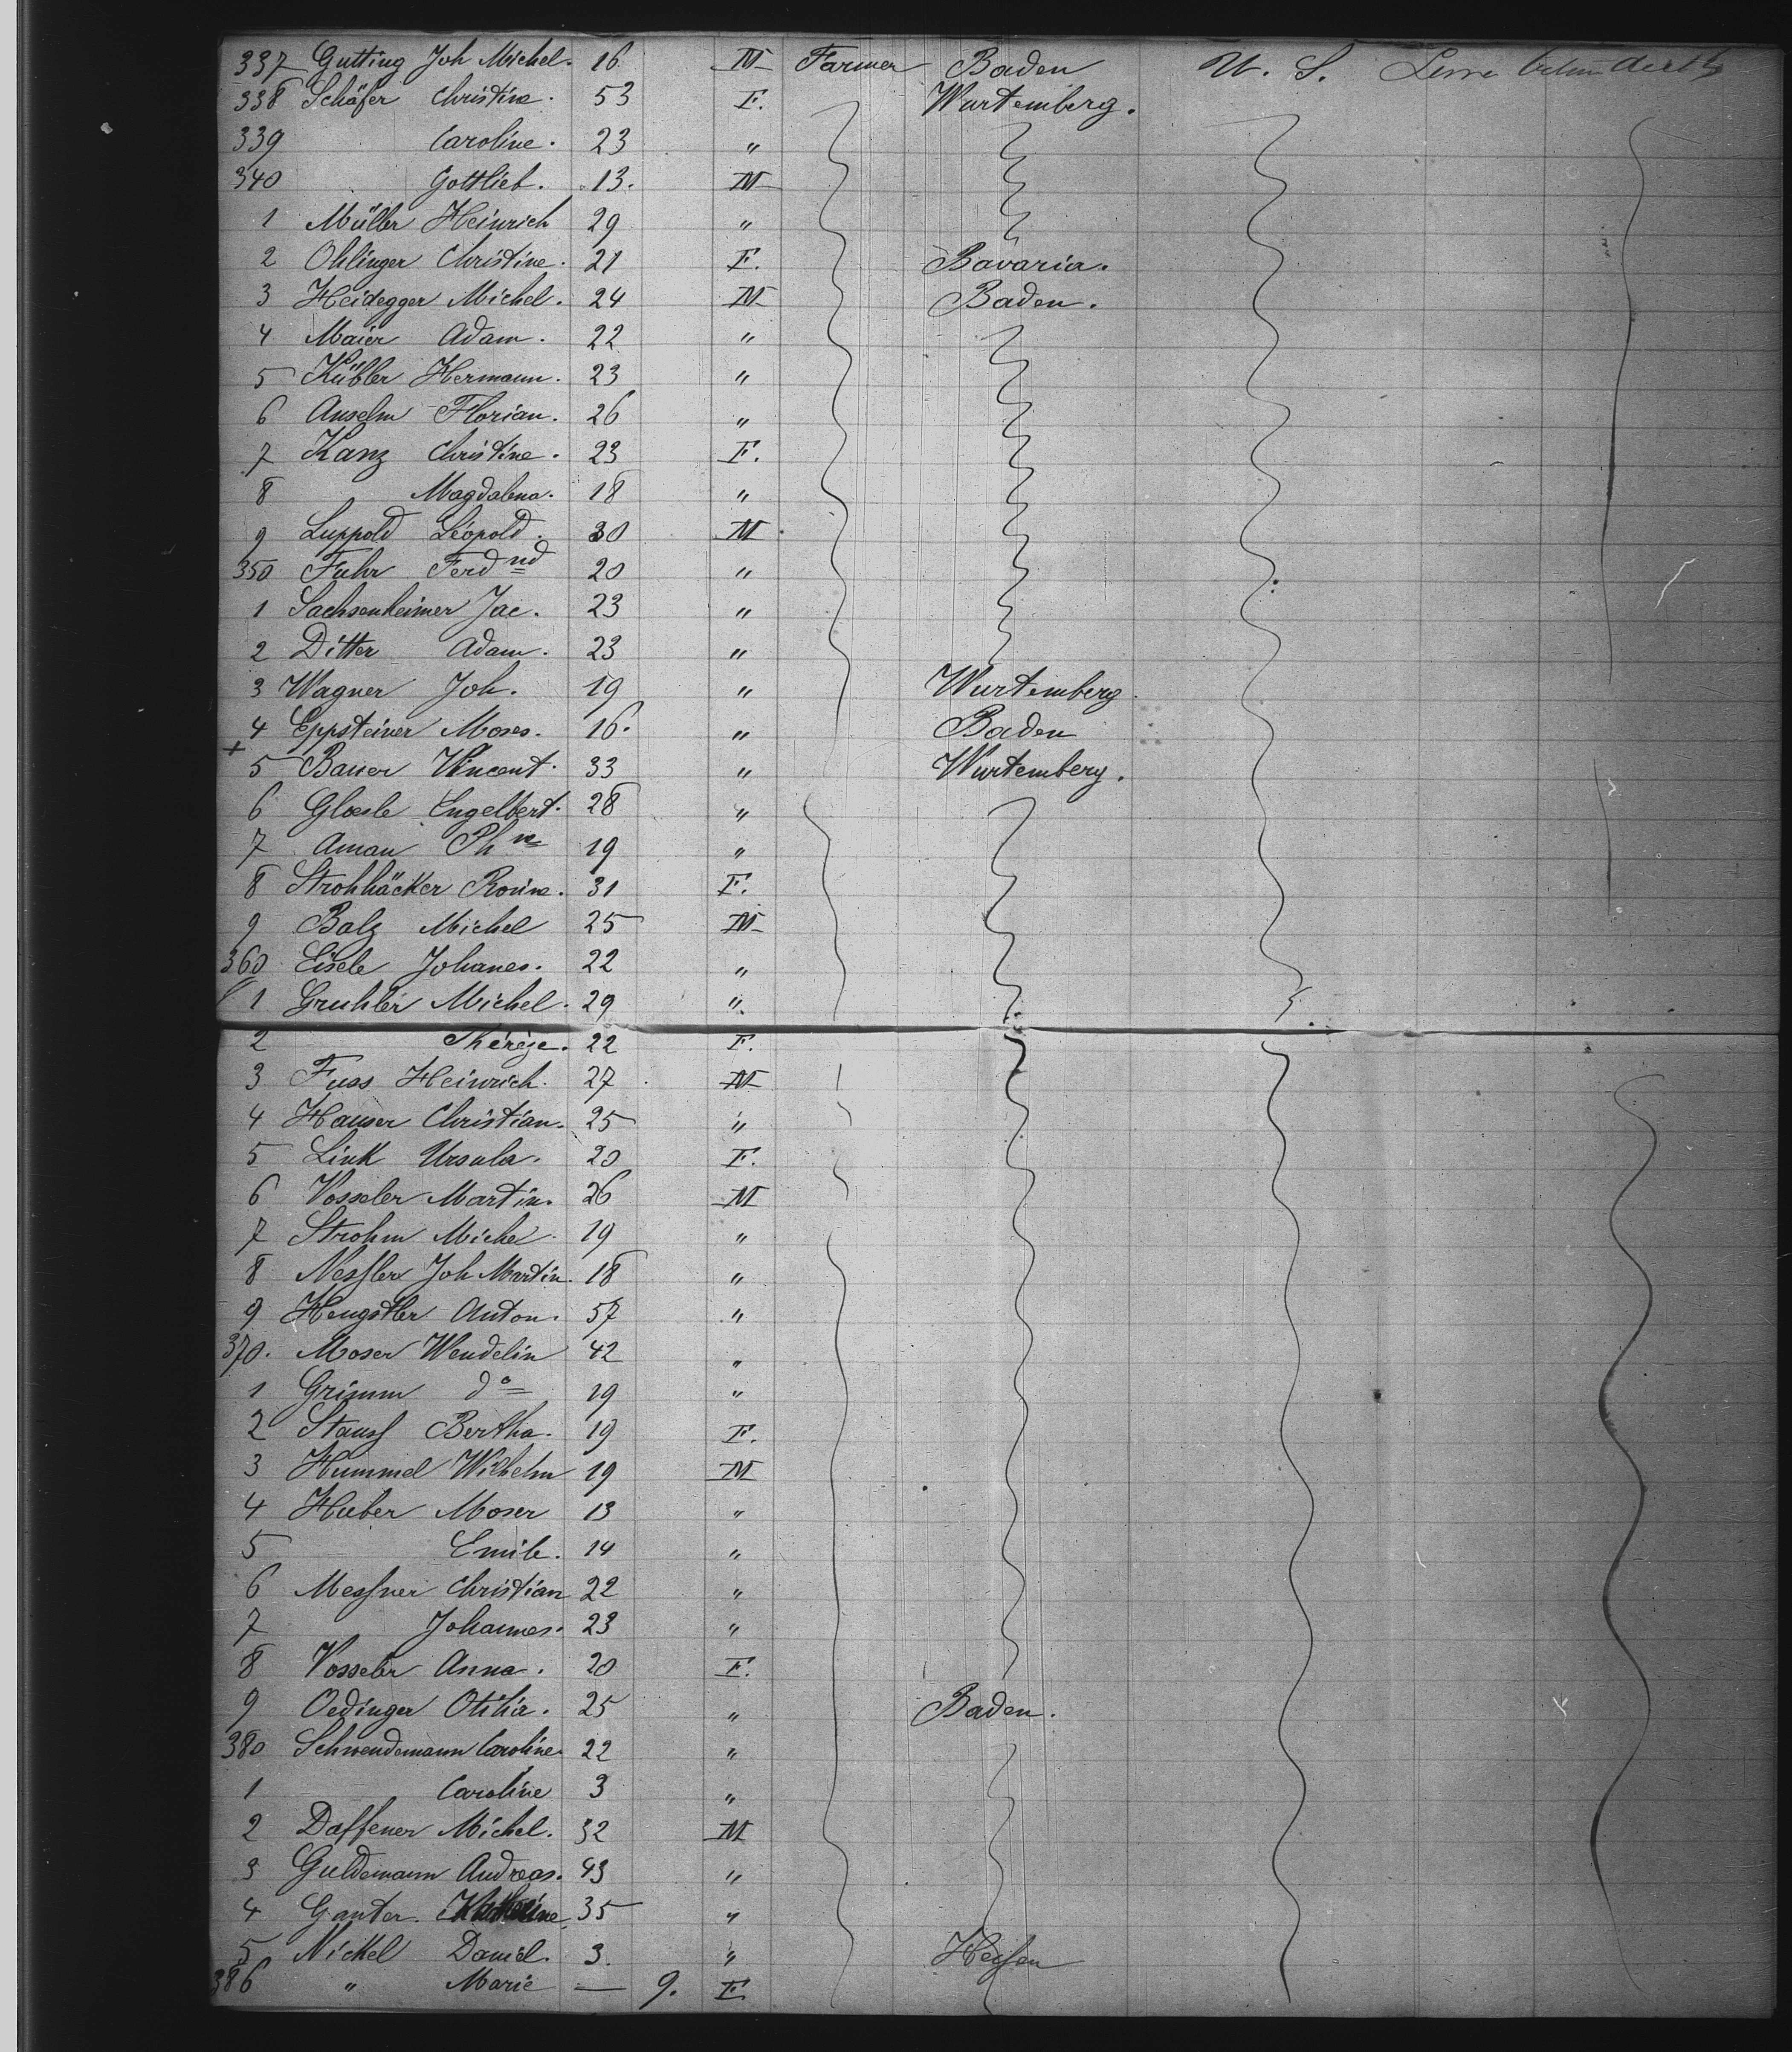 337 Gutting Joh Michel. 16 M Farmer Baden U. S.
338 Schäfer Christine. 53 F. Wurtemberg.
339 Caroline. 23 "
340 Gottlieb. 13. M
1 Müller Heinrich 29 "
2 Ohlinger Christine. 21 F. Bavaria.
3 Heidegger Michel. 24 M Baden.
4 Maier Adam. 22 "
5 Kübler Hermann. 23 "
6 Anselm Florian. 26 "
7 Kanz Christine. 23 F.
8 Magdalena. 18 "
9 Luppold Léopold. 30 M
350 Fuhr Ferdnd 20 "
1 Sachsenheimer Jac. 23 "
2 Ditter Adam. 23 "
3 Wagner Joh. 19 " Wurtemberg
4 Eppsteiner Moses. 16. " Baden
+ 5 Bauer Vincent. 33 " Wurtemberg.
6 Gloesle Engelbert. 28 "
7 Aman Ph 19 "
8 Strohhäcker Rosine. 31 F.
9 Balz Michel 25 M
360 Eisele Johanes. 22 "
1 Gruhler Michel. 29 "
2 Thérèse. 22 F.
3 Fuss Heinrich. 27 M
4 Hauser Christian. 25 "
5 Link Ursula. 20 F.
6 Vosseler Martin. 26 M
7 Strohm Michel 19 "
8 Nessler Joh Martin. 18 "
9 Hengstler Anton. 57 "
370. Moser Wendelin 42 "
1 Grimm do 19 "
2 Stauss Bertha. 19 F.
3 Hummel Wilhelm 19 M
4 Huber Moser 13 "
5 Emile. 14 "
6 Messner Christian 22 "
7 Johannes. 23 "
8 Vosseler Anna. 20 F.
9 Oedinger Otilia. 25 " Baden.
380 Schwendemann Caroline. 22 "
1 Caroline 3 "
2 Daffener Michel. 32 M
3 Guldemann Andreas. 43 "
4 Ganter 35 "
5 Nickel Daniel. 3. " Hessen
386 " Marie — 9. F